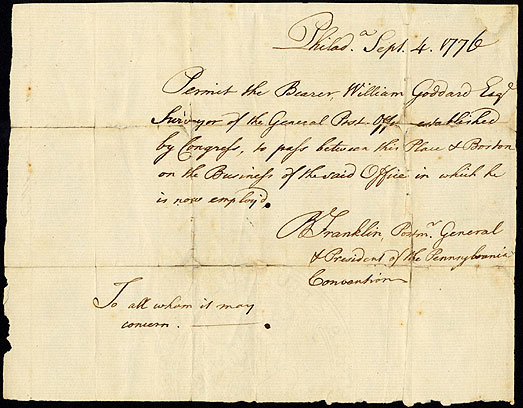 Philad.a Sept. 4. 1776
Permit the Bearer, William Goddard Esqr
Surveyor of the General Post Offe established
by Congress, to pass between this Place & Boston
on the Business of the said Office in which he
is now employ'd.
B Franklin, Postmr. General
& President of the Pennsylvania
Convention
To all whom it may
concern.